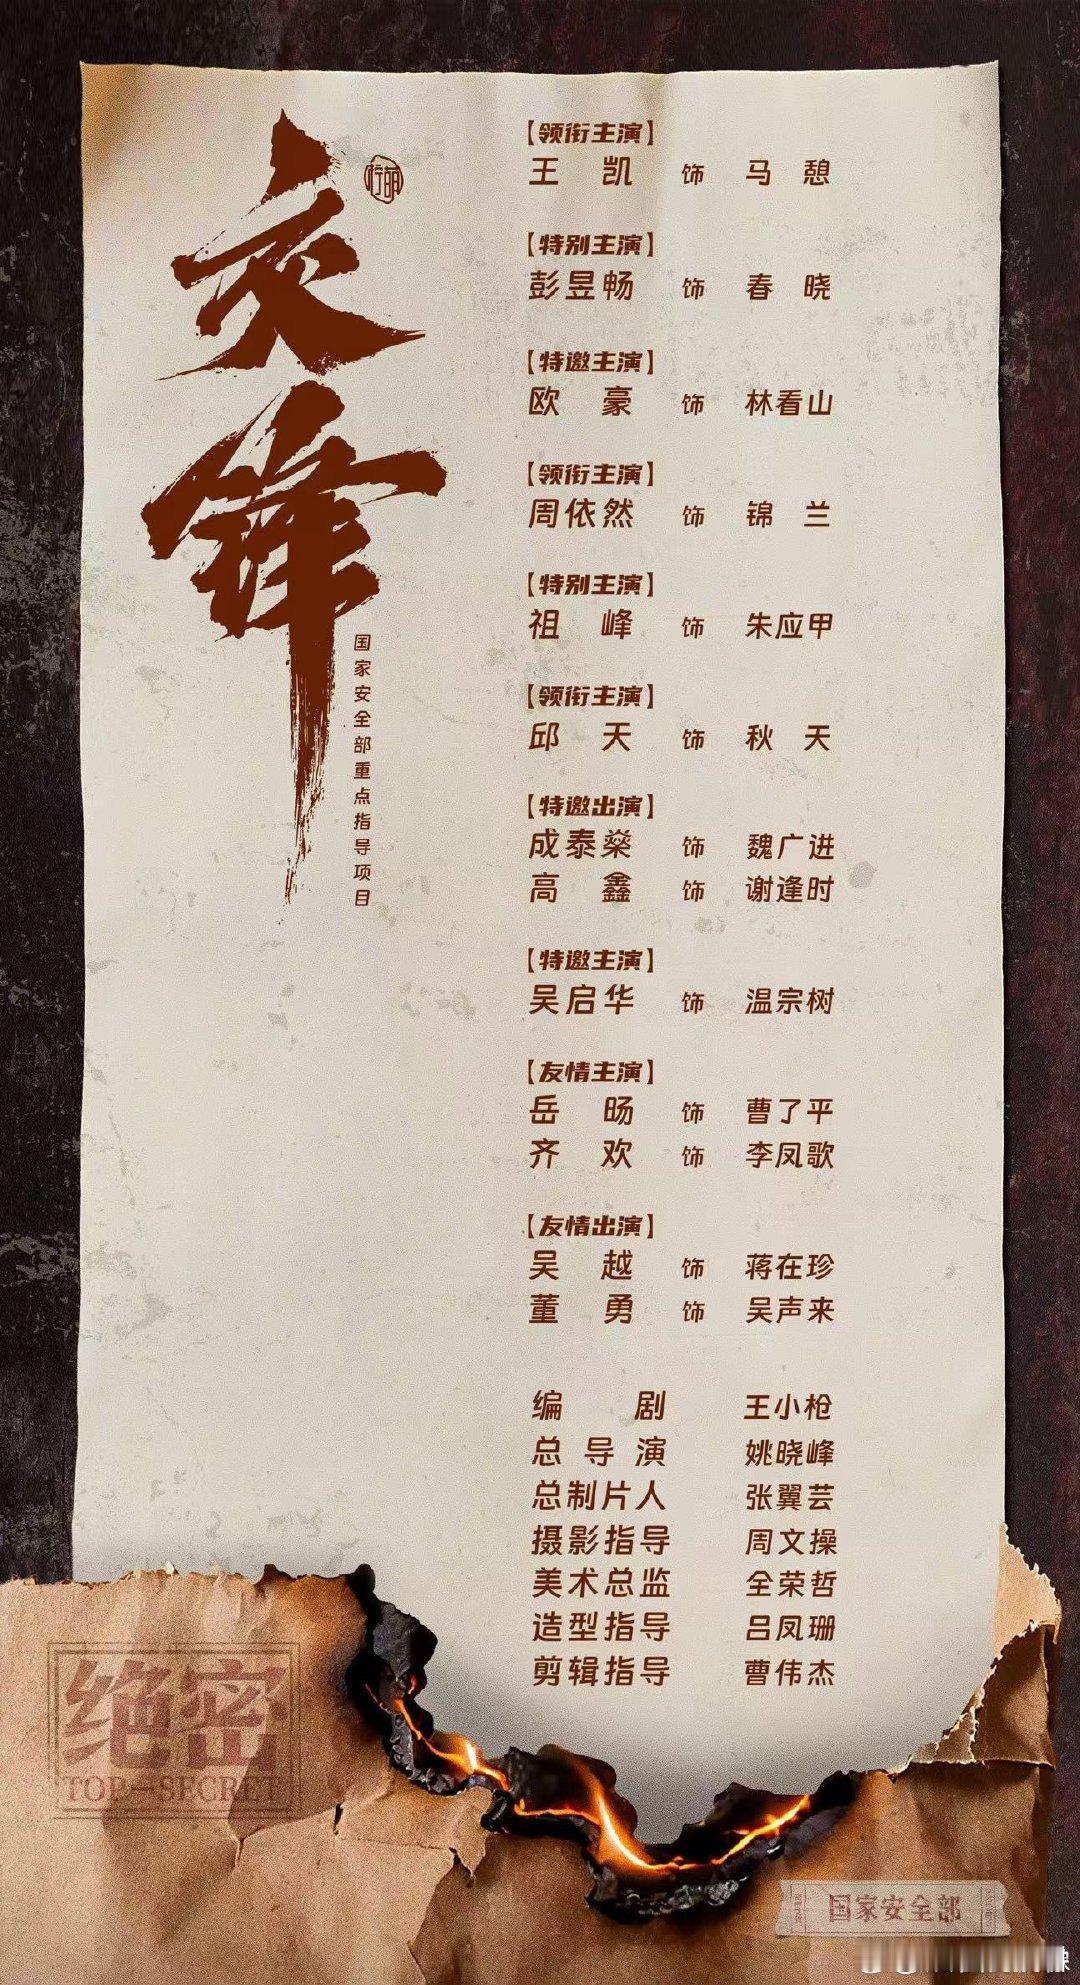 交锋
柠萌
国家安全部重点指导项目
【领衔主演】
王凯 饰 马憩
【特别主演】
彭昱畅 饰 春晓
【特邀主演】
欧豪 饰 林看山
【领衔主演】
周依然 饰 锦兰
【特别主演】
祖峰 饰 朱应甲
【领衔主演】
邱天 饰 秋天
【特邀出演】
成泰燊 饰 魏广进
高鑫 饰 谢逢时
【特邀主演】
吴启华 饰 温宗树
【友情主演】
岳旸 饰 曹了平
齐欢 饰 李凤歌
【友情出演】
吴越 饰 蒋在珍
董勇 饰 吴声来
编剧 王小枪
总导演 姚晓峰
总制片人 张翼芸
摄影指导 周文操
美术总监 全荣哲
造型指导 吕凤珊
剪辑指导 曹伟杰
绝密
TOP-SECRET
国家安全部